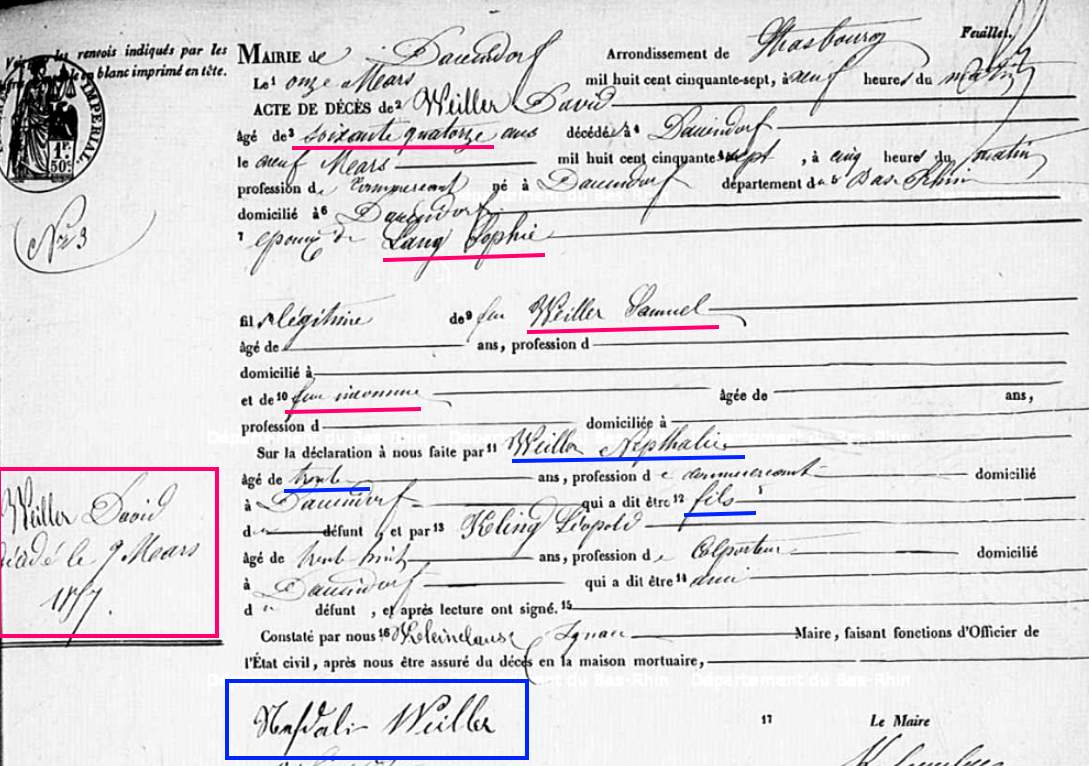 les renvois indiqués par les
en blanc imprimé en tête.
IMPÉRIAL.
1F.
50c.
Nr. 3
Weiller David
décédé le 9 Mars
1857.
Feuillet.
MAIRIE de Dauendorf Arrondissement de Strasbourg
Le 1 onze Mars mil huit cent cinquante-sept, à neuf heures du matin
ACTE DE DÉCÈS de 2 Weiller David
âgé de 3 soixante quatorze ans décédé à 4 Dauendorf
le neuf Mars mil huit cent cinquante-sept, à cinq heures du matin
profession de Commercant né à Dauendorf département du Bas-Rhin
domicilié à 6 Dauendorf
7 époux de Lang Sophie
fils légitime de 9 feu Weiller Samuel
âgé de ans, profession d
domicilié à
et de 10 feue inconnue âgée de ans,
profession d domiciliée à
Département du Bas-Rhin Département du Bas-Rhin
Sur la déclaration à nous faite par 11 Weiller Nepthalie
âgé de trente ans, profession de commercant domicilié
à Dauendorf qui a dit être 12 fils
du défunt, et par 13 Kling Léopold
âgé de trente huit ans, profession de Colporteur domicilié
à Dauendorf qui a dit être 14 ami
du défunt, et après lecture ont signé. 15
Constaté par nous 16 Kleinclaus Ignace Maire, faisant fonctions d'Officier de
l'État civil, après nous être assuré du décès en la maison mortuaire,
Département du Bas-Rhin
Nefdali Weiller
17 Le Maire